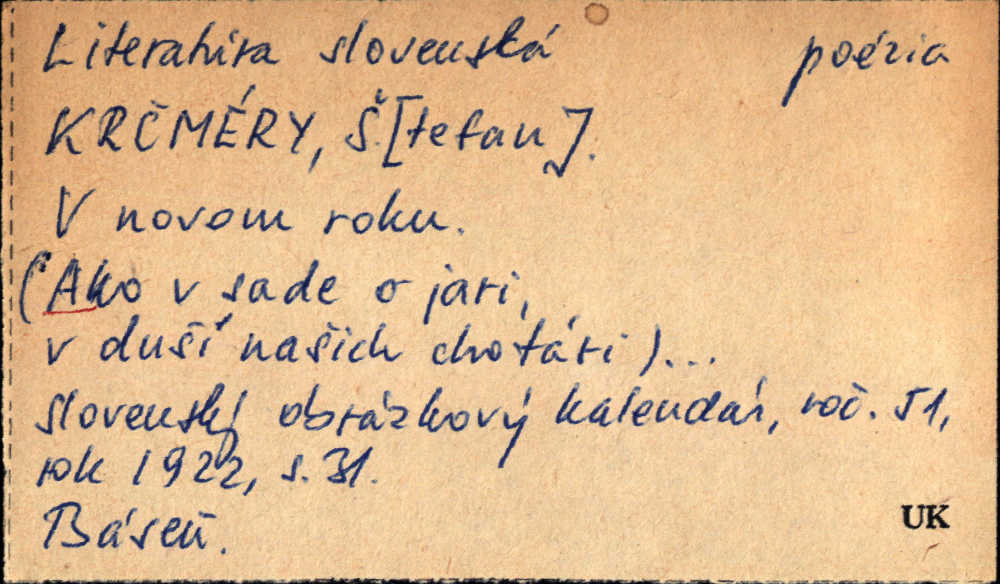 Literatúra slovenská poézia
KRČMÉRY, Š[tefan].
V novom roku.
(Ako v sade o jari,
v duší našich chotári)...
Slovenský obrázkový kalendár, roč. 51,
rok 1922, s. 31.
Báseň.
UK